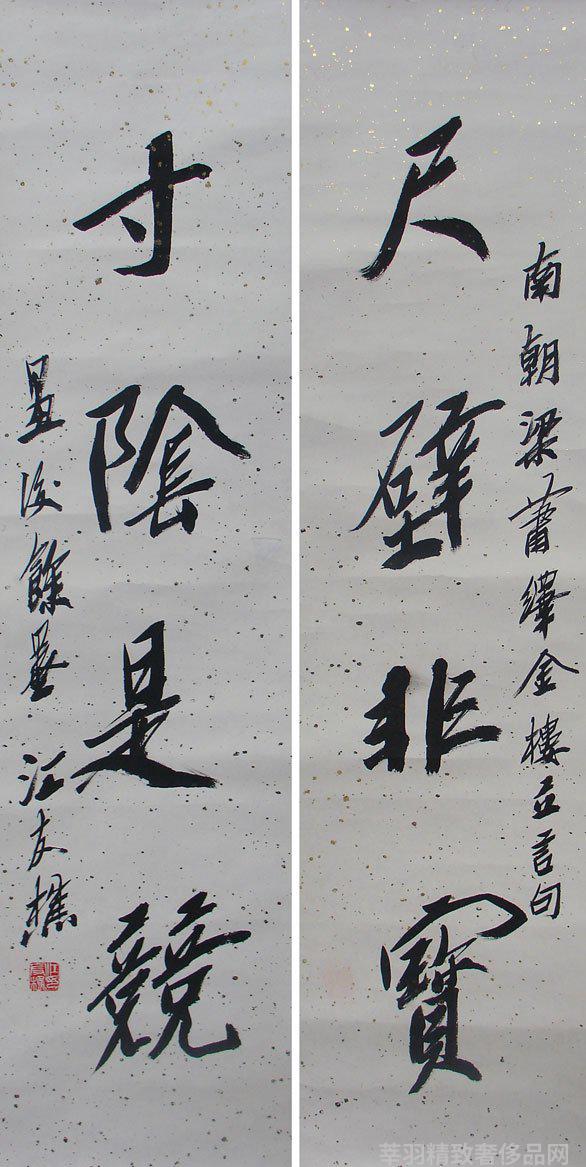 南朝梁蕭繹金樓立言句
尺璧非寶
寸陰是競
餘墨 汪友樵
莘羽精致奢侈品网